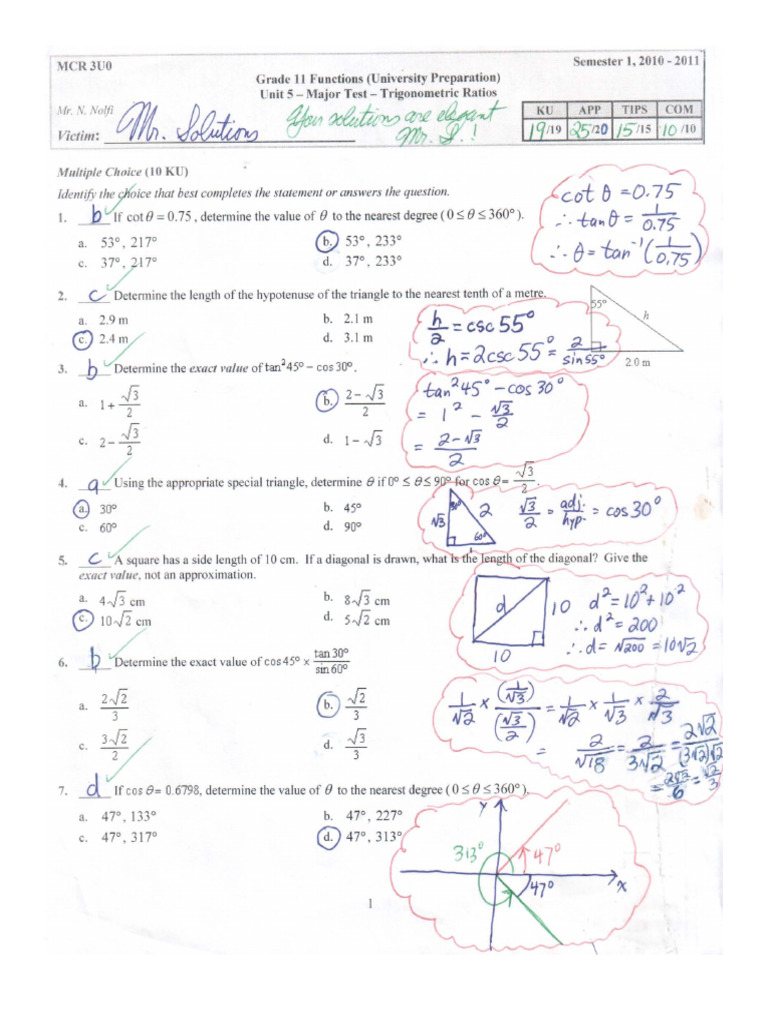 MCR 3U0 Semester 1, 2010 - 2011
Grade 11 Functions (University Preparation)
Unit 5 – Major Test – Trigonometric Ratios
Mr. N. Nolfi
Victim: Mr. Solutions
Your solutions are elegant
Mr. S.!
KU APP TIPS COM
19/19 25/20 15/15 10/10
Multiple Choice (10 KU)
Identify the choice that best completes the statement or answers the question.
1. b If cot θ = 0.75 , determine the value of θ to the nearest degree ( 0 ≤ θ ≤ 360° ).
a. 53° , 217° b. 53° , 233°
c. 37° , 217° d. 37° , 233°
cot θ = 0.75
∴ tan θ = 1/0.75
∴ θ = tan⁻¹(1/0.75)
2. c Determine the length of the hypotenuse of the triangle to the nearest tenth of a metre.
a. 2.9 m b. 2.1 m
c. 2.4 m d. 3.1 m
h/2 = csc 55°
∴ h = 2csc 55° = 2/sin 55°
55°
h
2.0 m
3. b Determine the exact value of tan²45° – cos 30° .
a. 1 + √3/2 b. 2 – √3/2
c. 2 – √3/2 d. 1 – √3
tan²45° – cos 30°
= 1² – √3/2
= 2–√3/2
4. a Using the appropriate special triangle, determine θ if 0° ≤ θ ≤ 90° for cos θ = √3/2 .
a. 30° b. 45°
c. 60° d. 90°
30° 2
√3
60°
√3/2 = adj./hyp. = cos 30°
5. c A square has a side length of 10 cm. If a diagonal is drawn, what is the length of the diagonal? Give the
exact value, not an approximation.
a. 4√3 cm b. 8√3 cm
c. 10√2 cm d. 5√2 cm
d 10
10
d² = 10² + 10²
∴ d² = 200
∴ d = √200 = 10√2
6. b Determine the exact value of cos 45° × tan 30°/sin 60°
a. 2√2/3 b. √2/3
c. 3√2/2 d. √3/3
1/√2 × (1/√3)/(√3/2) = 1/√2 × 1/√3 × 2/√3
= 2/√18 = 2/3√2 = 2√2/(3√2)√2
= 2√2/6 = √2/3
7. d If cos θ = 0.6798, determine the value of θ to the nearest degree ( 0 ≤ θ ≤ 360° ).
a. 47° , 133° b. 47° , 227°
c. 47° , 317° d. 47° , 313°
y
313° 47°
47° x
1